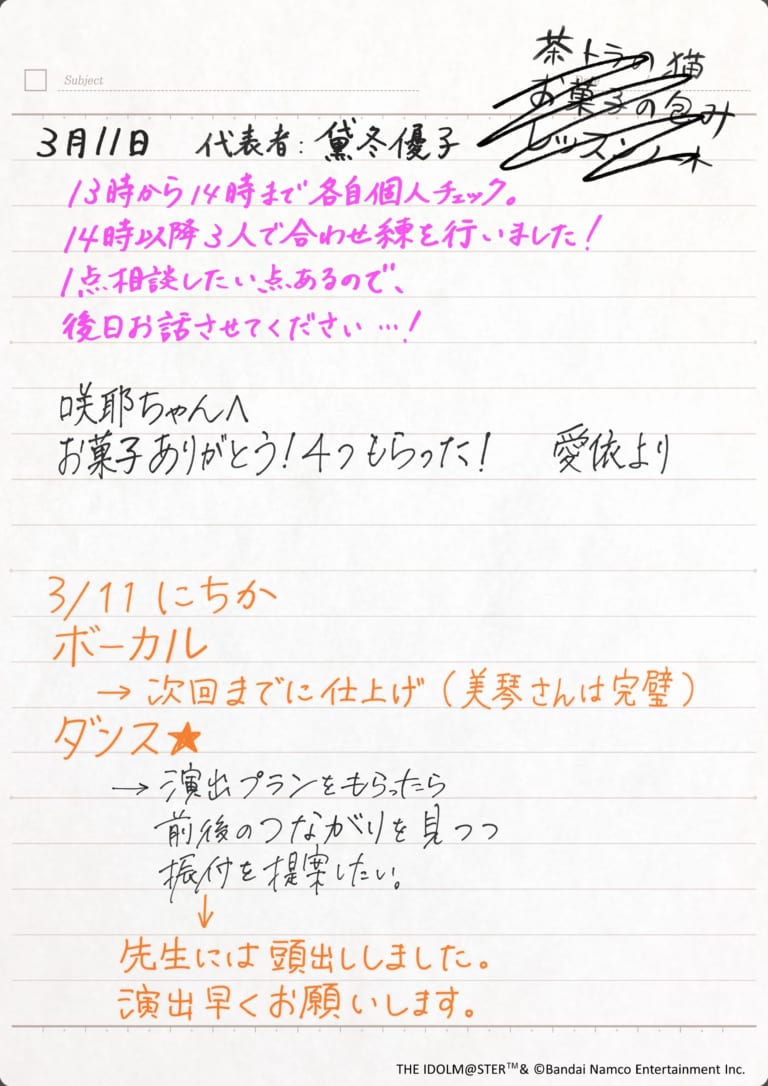 Subject
茶トラの猫
お菓子の包み
3月11日 代表者：黛冬優子
13時から14時まで各自個人チェック。
14時以降3人で合わせ練を行いました！
1点相談したい点あるので、
後日お話させてください…！
咲耶ちゃんへ
お菓子ありがとう！4つもらった！ 愛依より
3/11 にちか
ボーカル
→ 次回までに仕上げ（美琴さんは完璧）
ダンス★
→ 演出プランをもらったら
前後のつながりを見つつ
振付を提案したい。
↓
先生には頭出ししました。
演出早くお願いします。
THE IDOLM@STER™& ©Bandai Namco Entertainment Inc.